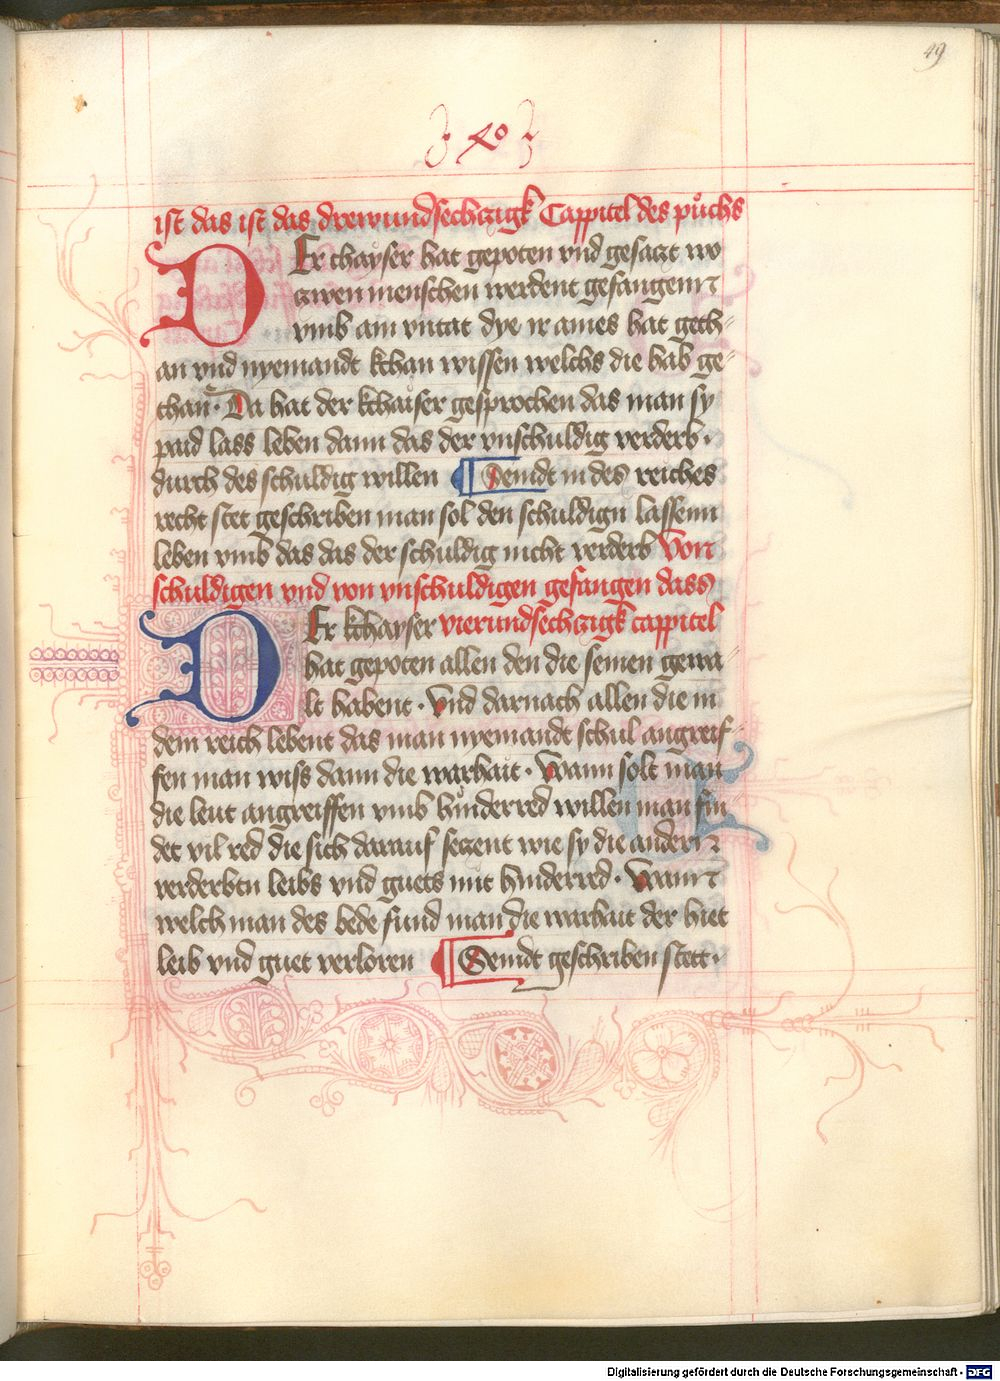 49
xo
ist das ist das drewundsechczigk Cappitel des půchs
DEr chayser hat gepoten vnd gesaczt wo
czwen menschen werdent gefangenn
vmb am vntat dye ir aines hat geth-
an vnd nyemandt kthan wissen welchs die hab ge-
than. Da hat der kthaiser gesprochen das man sy
paid lass leben dann das der vnschuldig verderb.
durch des schuldig willen Seindt in des reiches
recht stet geschriben man sol den schuldign lassenn
leben vmb das das der schuldig nicht verderb Von
schuldigen vnd von vnschuldigen gefangen dass
DEr kthayser vierundsechczigk cappitel
hat gepoten allen den die seinen gewa-
lt habent. Vnd darnach allen die in
dem reich lebent das man nyemandt schul angreif-
fen man wiss dann die warhait. Wann solt man
die leut angreiffen vmb hinderred willen man fin
det vil red die sich darauf seczent wie sy die andern
verderbtn leibs vnd guets mit hinderred. Wann
welch man des bede fund man die warhait der hiet
leib vnd guet verloren Seindt geschriben stett.
Digitalisierung gefördert durch die Deutsche Forschungsgemeinschaft - DFG